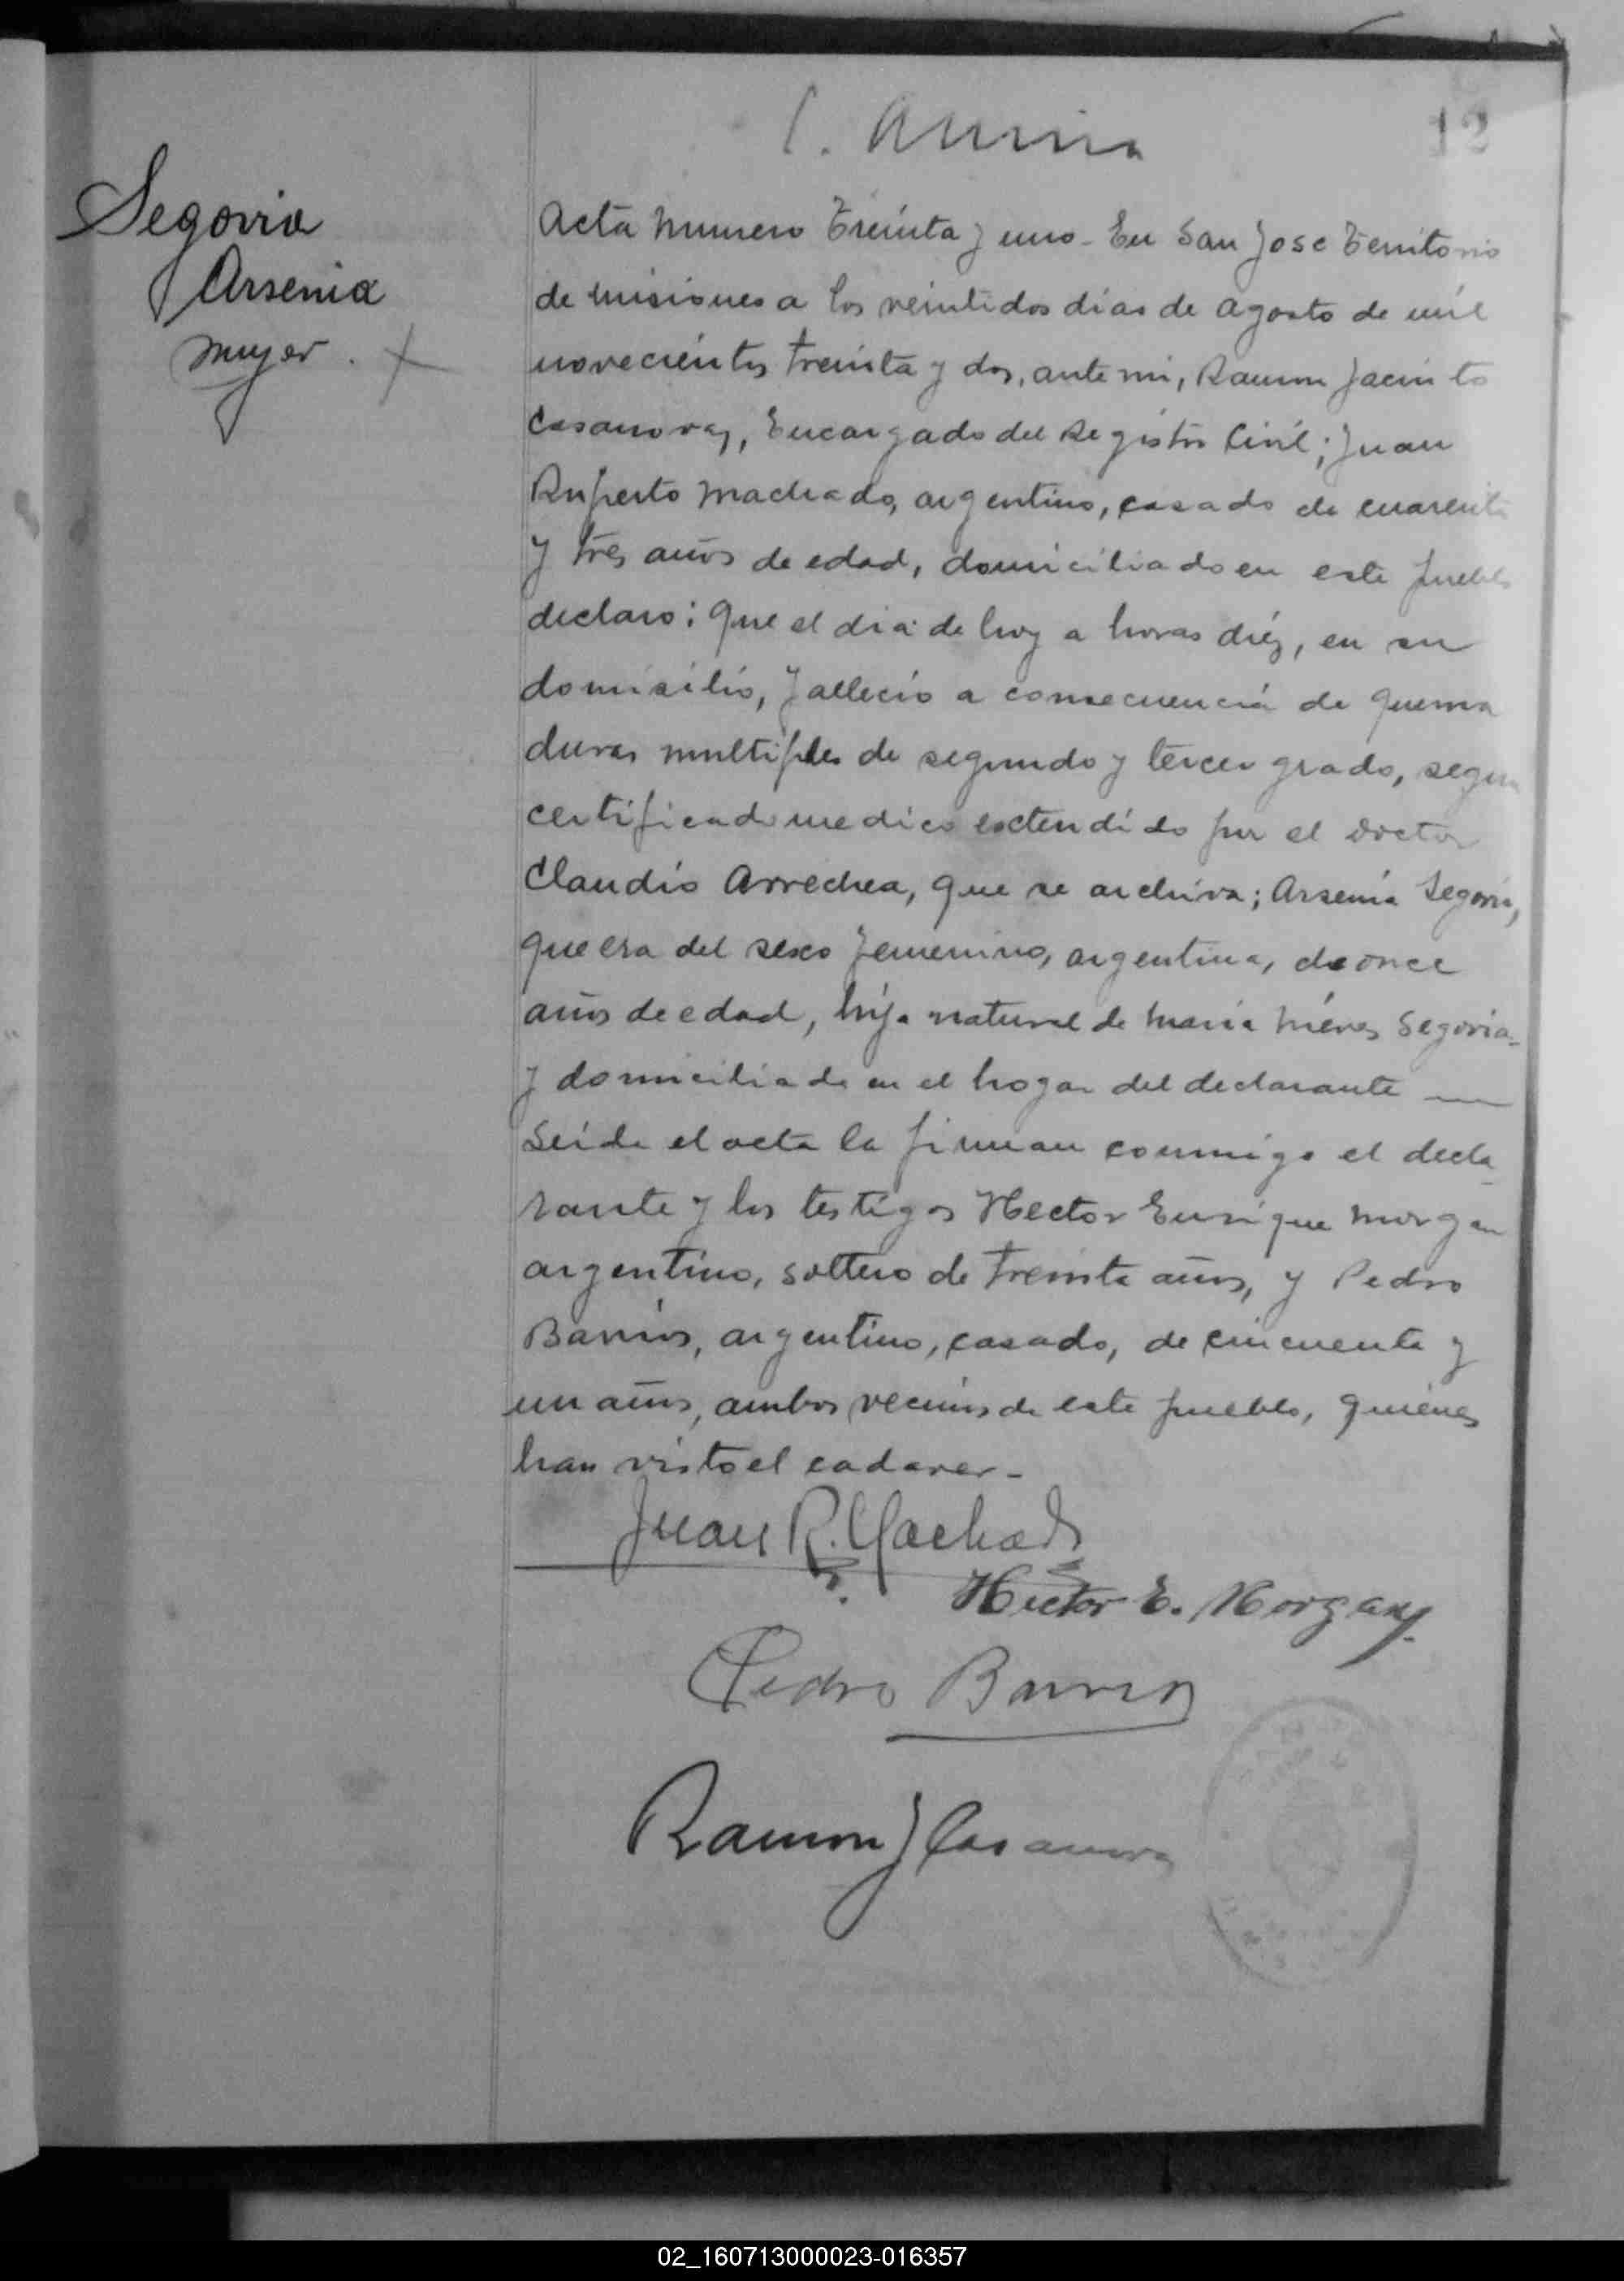 12
Segovia
Arsenia
mujer.
Acta numero Treinta y uno - En San Jose Territorio
de misiones a los veintidos dias de agosto de mil
novecientos treinta y dos, ante mi, Ramon Jacinto
Casanovas, Encargado del Registro Civil; Juan
Ruperto Machado, argentino, casado de cuarenta
y tres años de edad, domiciliado en este pueblo
declaro: Que el dia de hoy a horas diez, en su
domisilio, fallecio a consecuencia de quema
duras multiples de segundo y tercer grado, segun
certificado medico extendido por el doctor
Claudio Arrechea, que se archiva; Arsenia Segovia,
que era del sexo femenino, argentina, de once
años de edad, hija natural de Maria Nieves Segovia-
y domiciliada en el hogar del declarante
Leida el acta la firman conmigo el decla
rante y los testigos Hector Enrique Morgan
argentino, soltero de treinta años, y Pedro
Barrios, argentino, casado, de cincuenta y
un años, ambos vecinos de este pueblo, quienes
han visto el cadaver -
Juan R. Machado
Hector E. Morgan
Pedro Barrios
Ramon J Casanovas
02_160713000023-016357